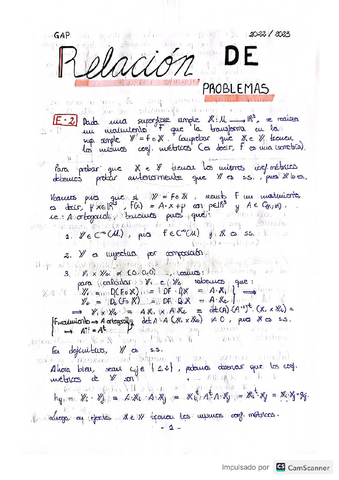 GAP 2022/2023
Relación DE
PROBLEMAS
E-2 Dada una superficie simple 𝕏: U → ℝ³, se realiza
un movimiento F que la transforma en la
sup. simple 𝕐 = F∘𝕏. Comprobar que 𝕏 e 𝕐 tienen
los mismos coef. métricos (es decir, F es una isometría).
Para probar que 𝕏 e 𝕐 tienen los mismos coef. métricos
debemos probar anteriormente que 𝕐 es s.s., pues 𝕏 lo es.
Veamos pues que si 𝕐 = F∘𝕏, siendo F un movimiento,
es decir, F(x) = A·x + p con p∈ℝ³ y A
i.e.: A ortogonal, tenemos pues que:
1. 𝕐 ∈ C^∞(U), pues F ∈ C^∞ y 𝕏 es s.s.
2. 𝕐 es inyectiva por composición.
3. 𝕐₁ × 𝕐₂ ≠ (0,0,0), veamos:
para calcular 𝕐₁ e 𝕐₂ sabemos que:
𝕐₁ = D₁(F∘𝕏) = DF·D₁𝕏 = A·𝕏₁
𝕐₂ = D₂(F∘𝕏) = DF·D₂𝕏 = A·𝕏₂
⟹ 𝕐₁ × 𝕐₂ = A·𝕏₁ × A·𝕏₂ = det(A)·(A⁻¹)ᵗ (𝕏₁ × 𝕏₂) =
F movimiento → A ortogonal → A⁻¹ = Aᵗ = det A·A (𝕏₁ × 𝕏₂) ≠ 0, pues 𝕏 es s.s.
En definitiva, 𝕐 es s.s.
Ahora bien, sean i,j ∈ {1,2}, podemos observar que los coef.
métricos de 𝕐 son:
hᵢⱼ = 𝕐ᵢ · 𝕐ⱼ = A·𝕏ᵢ · A·𝕏ⱼ = 𝕏ᵢᵗ Aᵗ · A·𝕏ⱼ = 𝕏ᵢᵗ · 𝕏ⱼ = 𝕏ᵢ·𝕏ⱼ = gᵢⱼ
Luego en efecto 𝕏 e 𝕐 tienen los mismos coef. métricos.
- 1 -
Impulsado por CS CamScanner